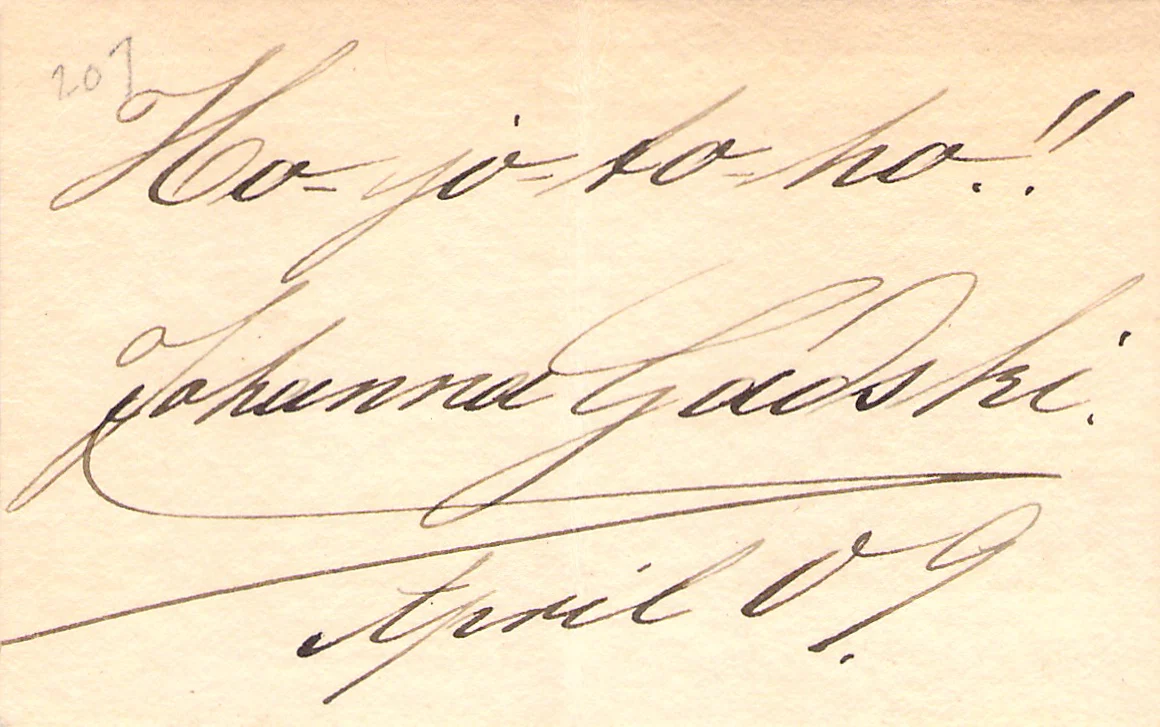 207
Ho-jo-to-ho!!
Johanna Gadski.
April 09.